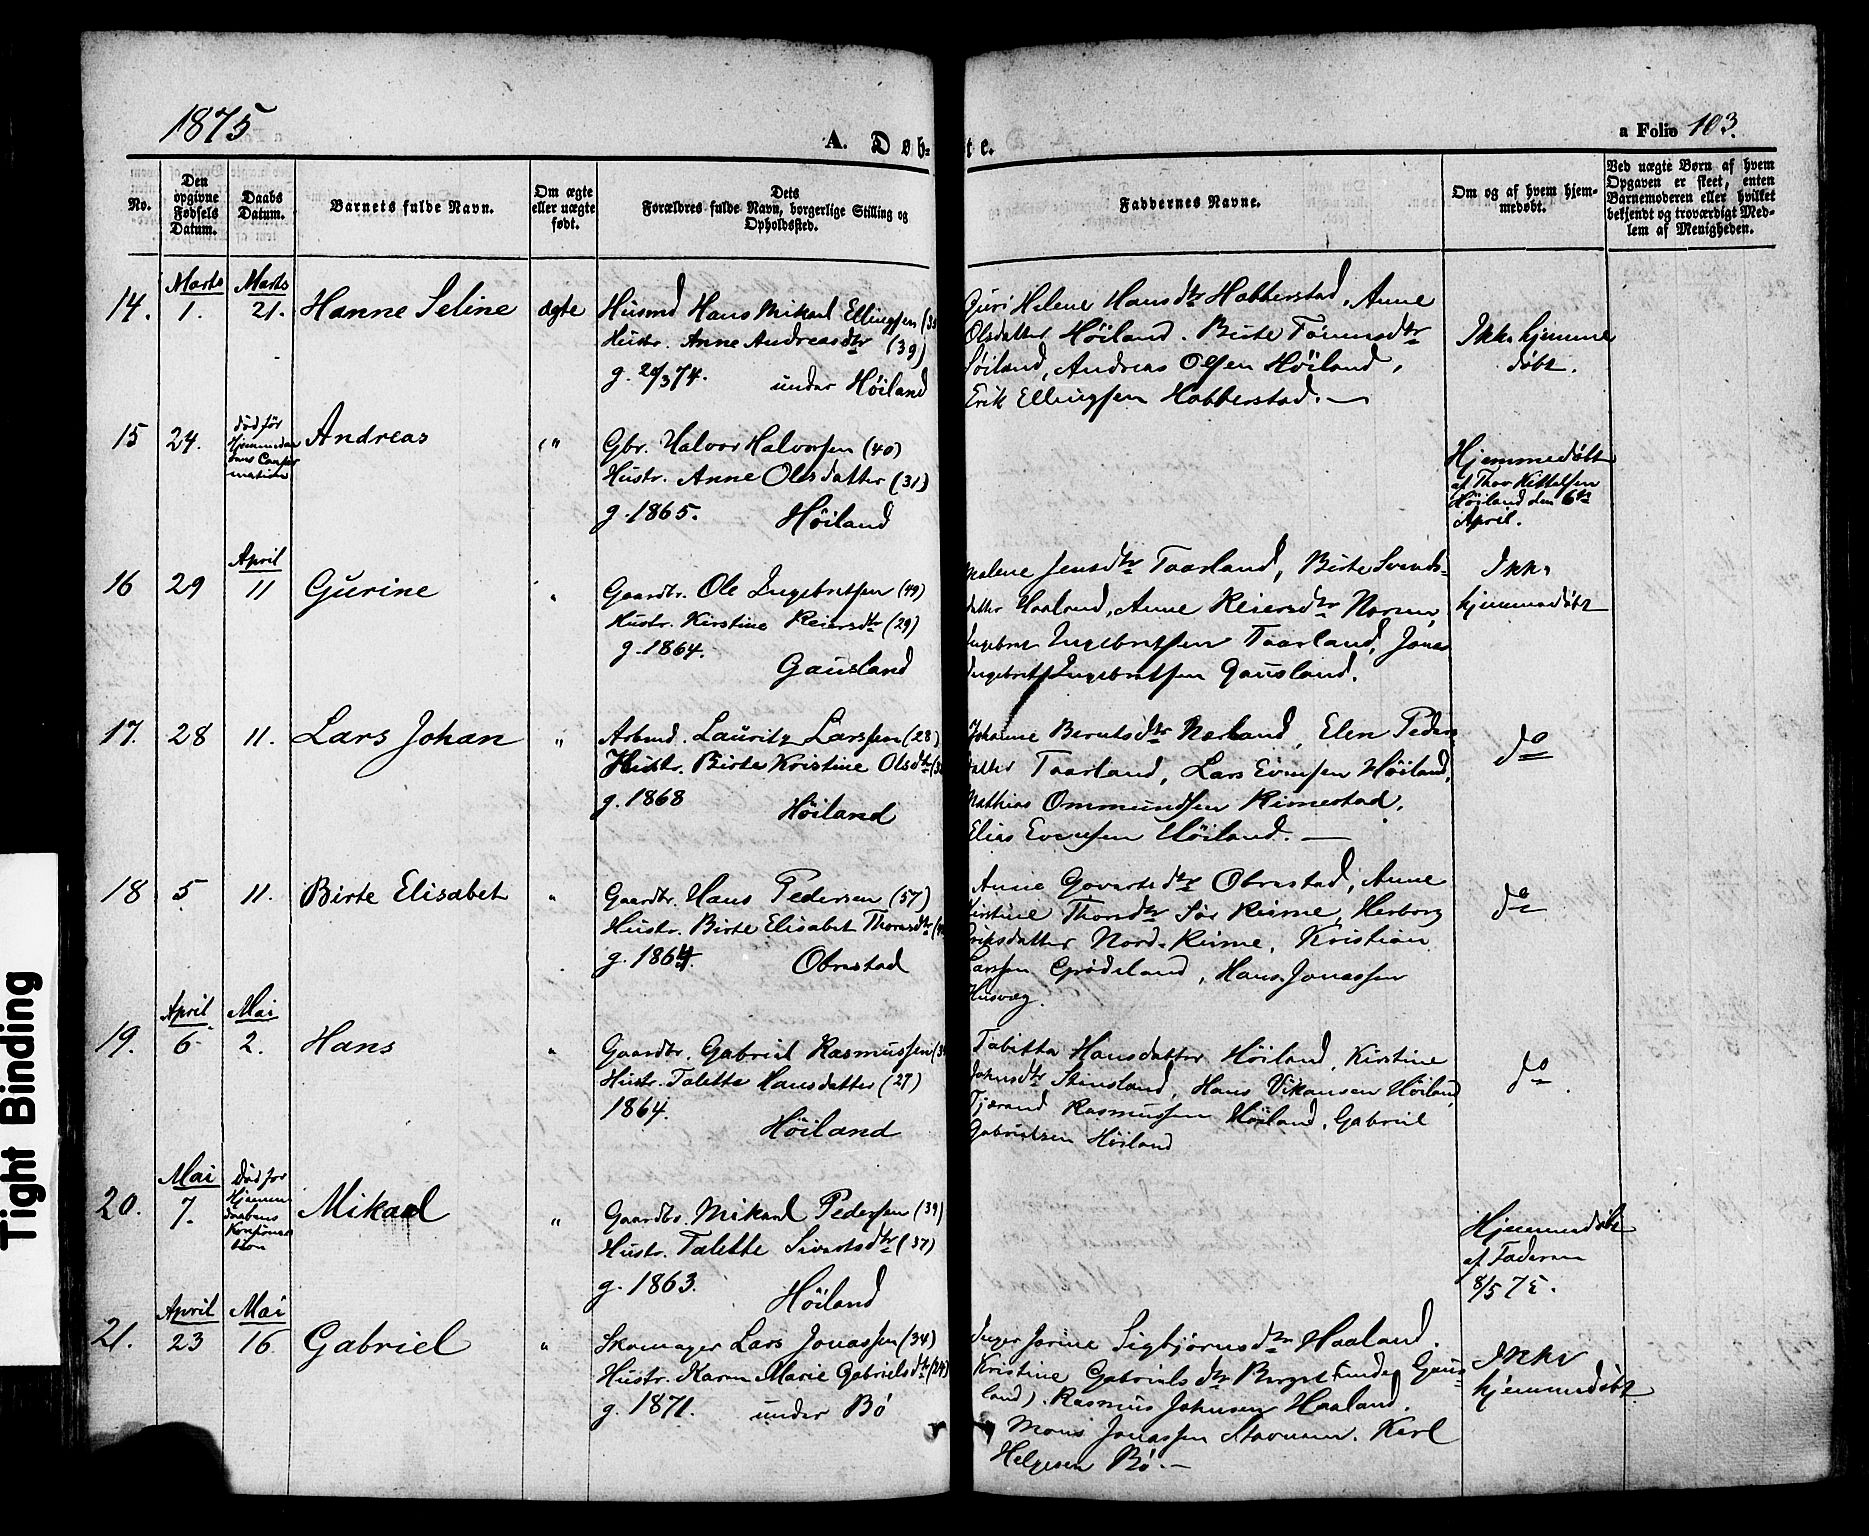 1875
A. Døb-te.
a Folio 103.
No.
Den opgivne Fødsels Datum.
Daabs Datum.
Barnets fulde Navn.
Om ægte eller uægte født.
Dets Forældres fulde Navn, borgerlige Stilling og Opholdssted.
Faddernes Navne.
Om og af hvem hjemmedøbt.
Ved uægte Børn af hvem Opgaven er skeet, enten Barnemoderen eller hvilket bekjendt og troværdigt Medlem af Menigheden.
14.
Marts
1.
Marts
21.
Hanne Seline
ægte
Husmd Hans Mikael Ellingsen
Hustr. Anne Andreasdtr (39)
g. 20/3 74. under Höiland
Guri Helene Hansdtr Hobberstad, Anne
Olsdatter Höiland. Birte
Andreas Olsen Höiland,
Erik Ellingsen Hobberstad. —
Ikke hjemme
døbt.
15
24.
död för
Hjemmedaa
bens Confir
mation
Andreas
"
Gbr. Halvor Halvorsen (40)
Hustr. Anne Olsdatter (31)
g. 1865. Höiland
Hjemmedöbt
af Thor Kittelsen
Höiland den 6te
April.
16
29
April
11
Gurine
"
Gaardbr. Ole Ingebretsen (49)
Hustr. Kirstine Reiersdtr (29)
g. 1864.
Gausland
Malene Jensdtr Taarland, Birte Svends-
datter Haaland, Anne Reiersdtr
Ingebret Ingebretsen Taarland, Jonas
Ingebretsen Gausland.
Ikke
hjemmedöbt
17.
28
11.
Lars Johan
"
Arbmd. Lauritz Larssen (28)
Hustr. Birte Kristine Olsdtr
g. 1868 Höiland
Johanne Berntsdtr Nærland, Elen Peders
datter Taarland, Lars Evensen Höiland,
Mathias Ommundsen Rimestad,
Elias Evensen Höiland. —
do
18
5
11.
Birte Elisabet
"
Gaardbr. Hans Pedersen (57)
Hustr. Birte Elisabet Thorsdtr
g. 1864. Obrestad
Anne Govertsdtr Obrestad, Anne
Kirstine Thorsdtr Sör Reime, Herborg
Eriksdatter Nord-Reime, Kristian
Larssen Grödeland, Hans Jonassen
Husvæg.
do
19.
April
6
Mai
2.
Hans
"
Gaardbr. Gabriel Rasmussen
Hustr. Talette Hansdatter (27)
1864.
Höiland
Tabitta Hansdatter Höiland, Kirstine
Johnsdtr Stensland, Hans Vikansen Höiland
Tjærand Rasmussen Höiland, Gabriel
Gabrielsen Höiland
do
20.
Mai
7.
Död for
Hjemme
daabens
Konfirma
tion
Mikael
"
Gaardbr. Mikael Pedersen (39)
Hustr. Talette Sivertsdtr (37)
g. 1863.
Höiland
Hjemmedöbt
af Faderen
8/5 75.
21.
April
23
Mai
16
Gabriel
"
Skomager Lars Jonassen (34)
Hustr. Karen Marie Gabrielsdtr (24)
g. 1871. under Bö
Inger Jorine Sigbjörnsdtr Haaland.
Kristine Gabrielsdtr Berget (under Gaus-
land). Rasmus Johnsen Haaland.
Mons Jonassen Karl
Helgesen Bö. —
Ikke
hjemmedöbt
Tight Binding